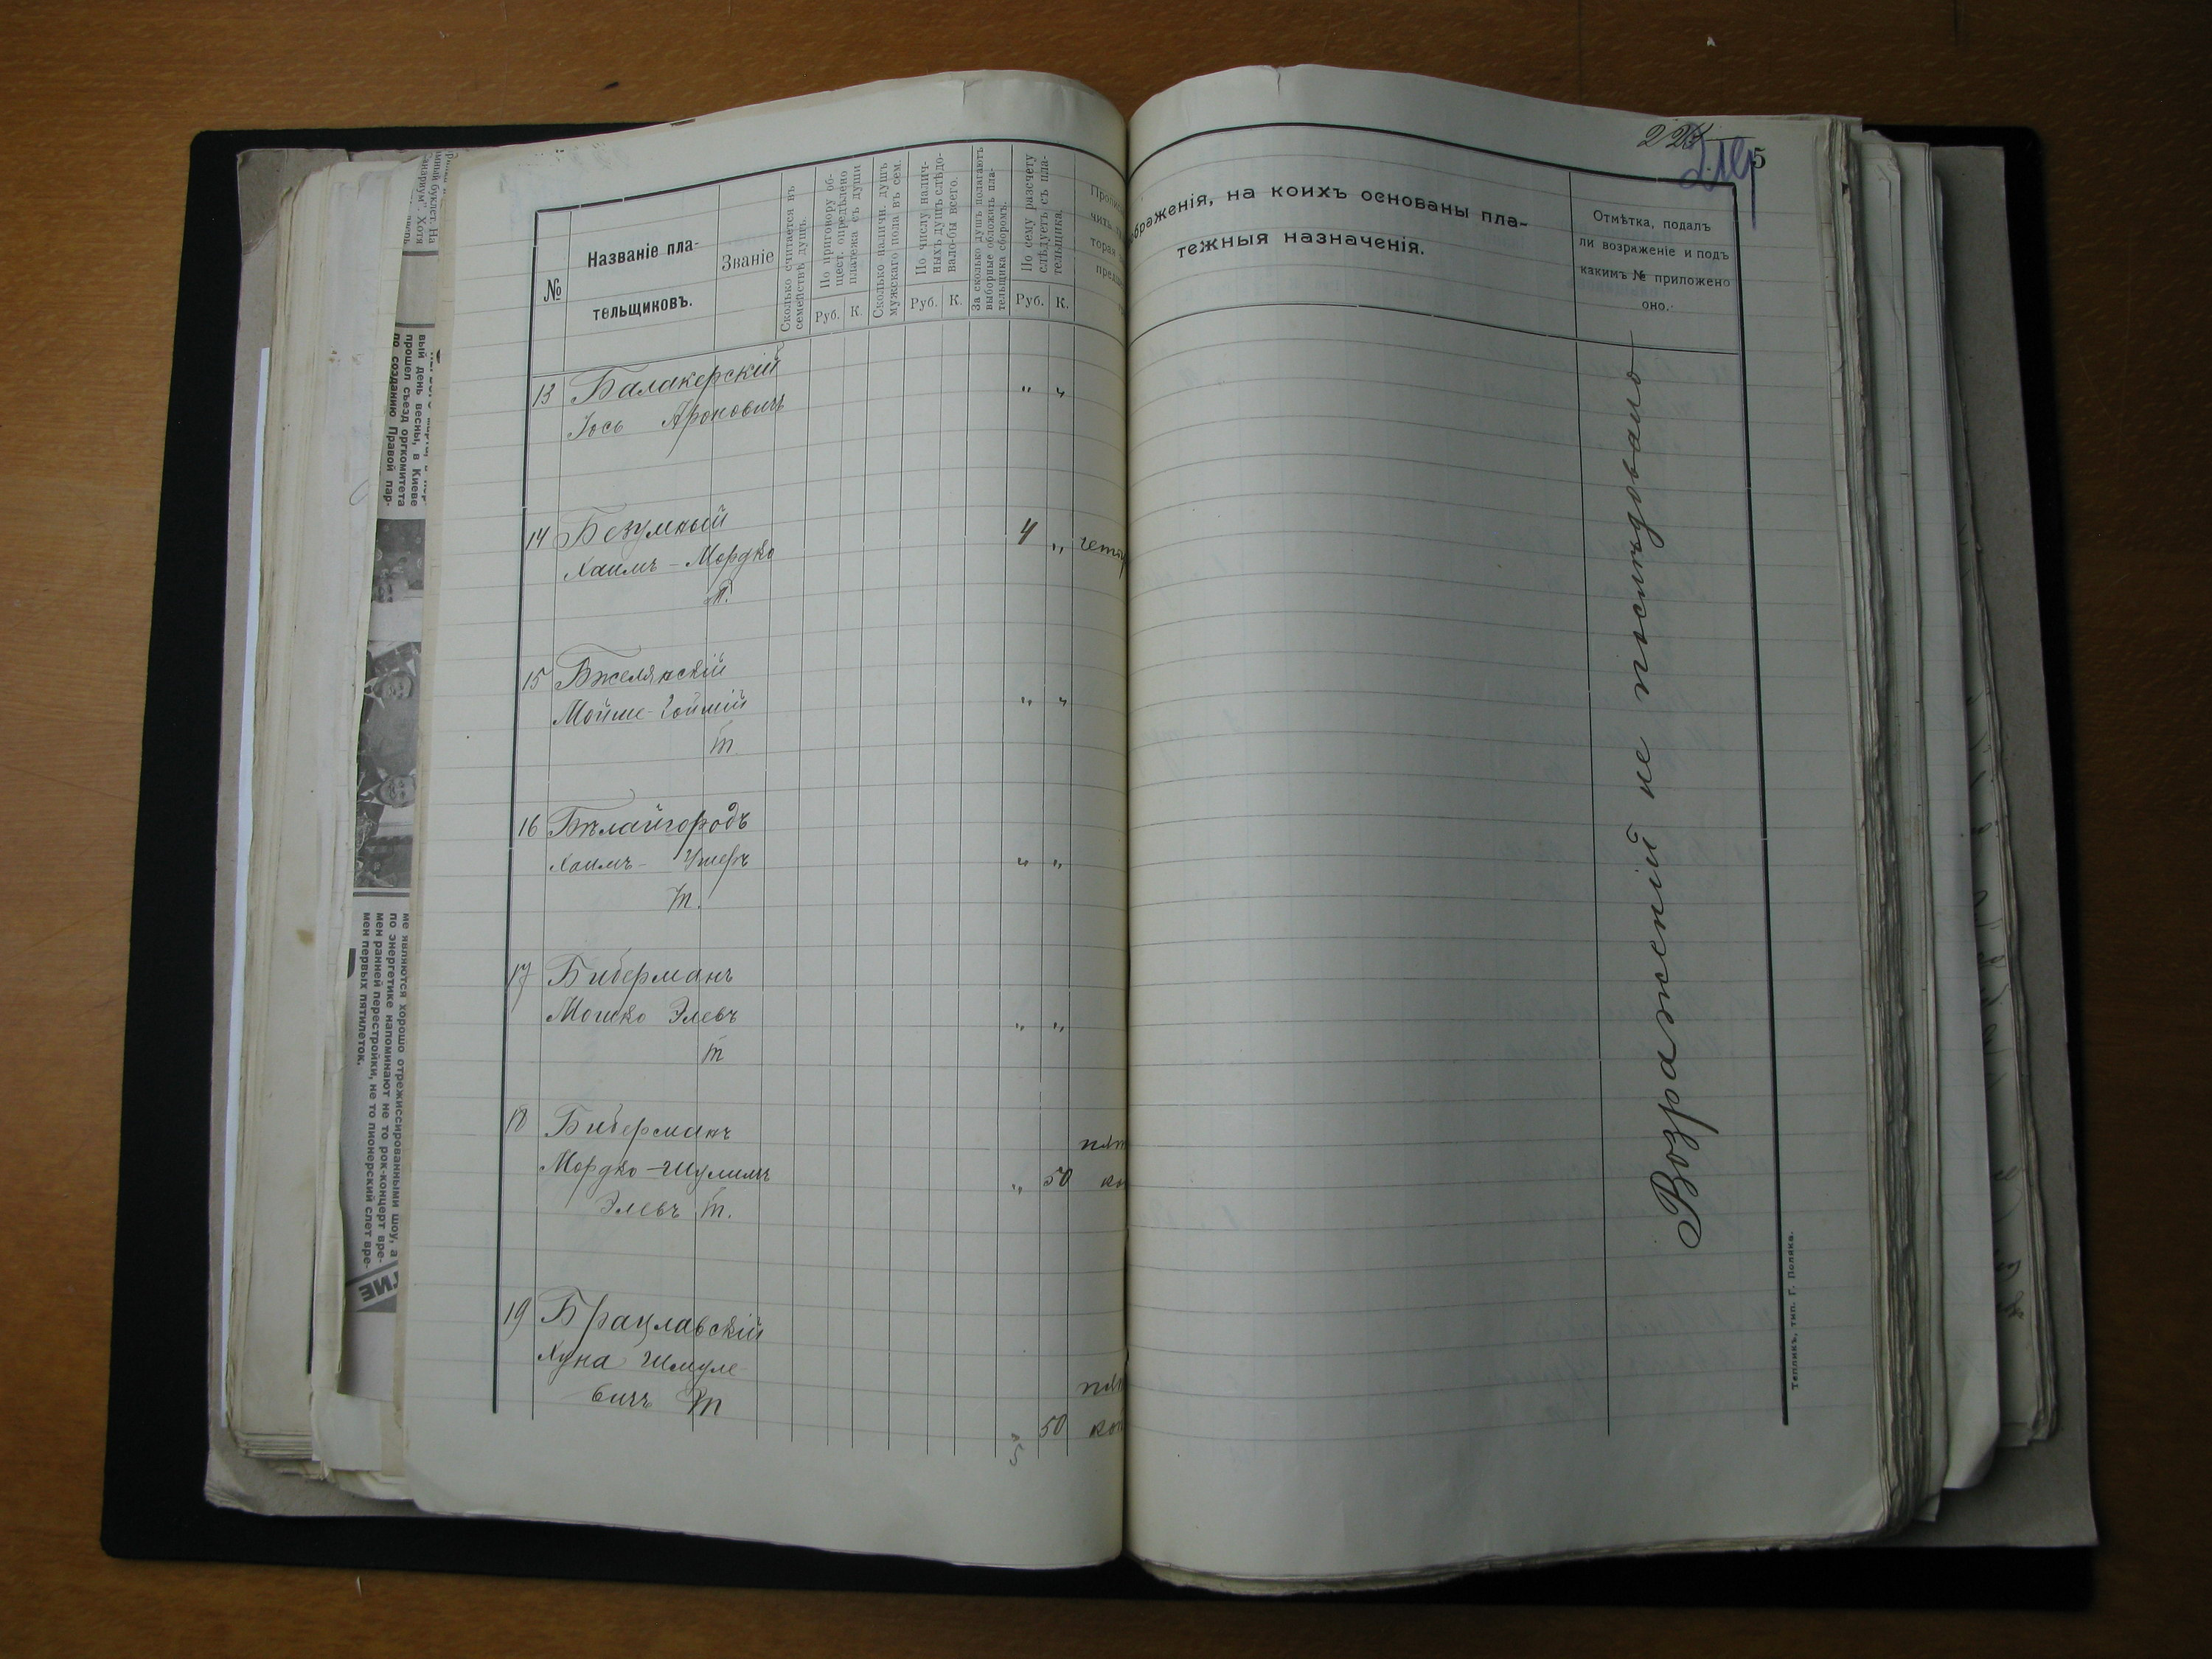 №
Названіе пла-
тельщиковъ.
Званіе
Сколько считается въ
семействѣ душъ.
По приговору об-
щест. опредѣлено
платежа съ души
Руб. К.
Сколько наличн. душъ
мужскаго пола въ сем.
По числу налич-
ныхъ душъ слѣдо-
вало-бы всего.
Руб. К.
За сколько душъ полагаютъ
выборные обложить пла-
тельщика сборомъ.
По сему разсчету
слѣдуетъ съ пла-
тельщика.
Руб. К.
13 Балакерскій
Іось Ароновичъ " "
14 Безумный 4 "
Хаимъ - Мордко
15
" "
т.
16 Бѣлайгородъ
Хаимъ - Ушеръ " "
т.
17 Биберманъ
Мошко Элевъ " "
т
18 Биберманъ
Мордко - Шулимъ " 50
Элевъ т.
19 Брацлавскій
Хуна Шмуле-
вичъ т
" 50
ображенія, на коихъ основаны пла-
тежныя назначенія.
Отмѣтка, подалъ
ли возряженіе и подъ
какимъ № приложено
оно.
5
Возраженій не послѣдовало
Тепликъ, тип. Г. Поляка.
вый день весны, в Киеве
прошел съезд оргкомитета
по созданию Правой пар-
ме являются хорошо отрежиссированными шоу, а
по энергетике напоминают не то рок-концерт вре-
мен ранней перестройки, не то пионерский слет вре-
мен первых пятилеток.